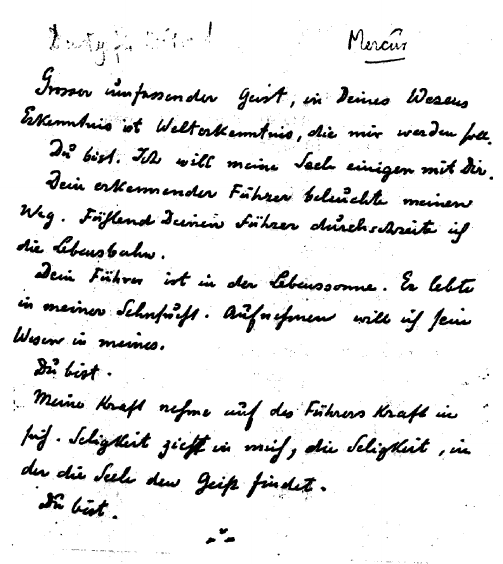 Mercur
Grosser umfassender Geist, in Deines Wesens
Erkenntnis ist Welterkenntnis, die mir werden soll.
Du bist. Ich will meine Seele einigen mit Dir.
Dein erkennender Führer beleuchte meinen
Weg. Fühlend Deinen Führer durchschreite ich
die Lebensbahn.
Dein Führer ist in der Lebenssonne. Er lebte
in meiner Sehnsucht. Aufnehmen will ich sein
Wesen in meines.
Du bist.
Meine Kraft nehme auf des Führers Kraft in
sich. Seligkeit zieht in mich, die Seligkeit, in
der die Seele den Geist findet.
Du bist.